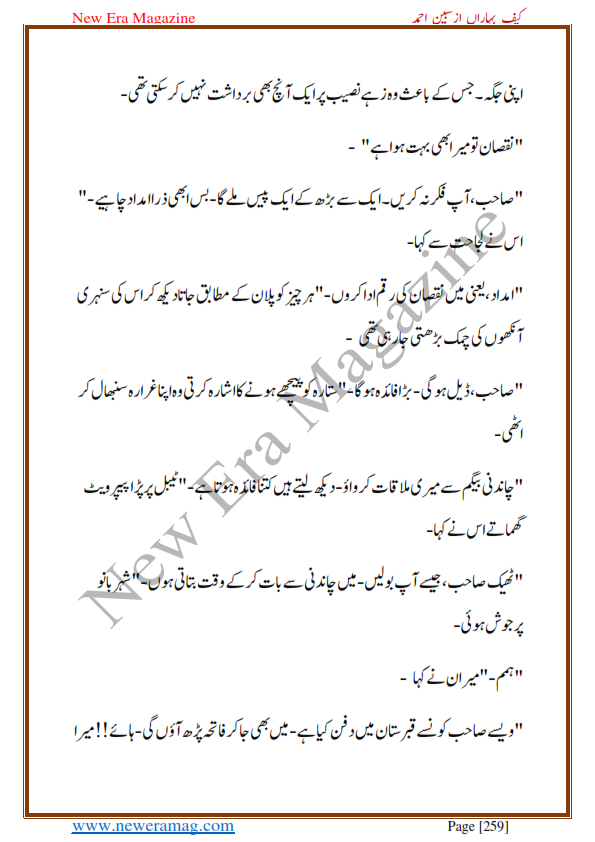 New Era Magazine کیف بہاراں از سبین احمد
اپنی جگہ۔ جس کے باعث وہ زہے نصیب پر ایک آنچ بھی برداشت نہیں کر سکتی تھی-
"نقصان تو میرا بھی بہت ہوا ہے" -
"صاحب، آپ فکر نہ کریں۔ ایک سے بڑھ کے ایک پیس ملے گا- بس ابھی ذرا امداد چاہیے-"
اس نے لجاحت سے کہا-
"امداد، یعنی میں نقصان کی رقم ادا کروں-" ہر چیز کو پلان کے مطابق جاتا دیکھ کر اس کی سنہری
آنکھوں کی چمک بڑھتی جا رہی تھی -
"صاحب، ڈیل ہوگی- بڑا فائدہ ہوگا-" ستارہ کو پیچھے ہونے کا اشارہ کرتی وہ اپنا غرارہ سنبھال کر
اٹھی-
"چاندنی بیگم سے میری ملاقات کرواؤ- دیکھ لیتے ہیں کتنا فائدہ ہوتا ہے-" ٹیبل پر پڑا پیپر ویٹ
گھماتے اس نے کہا-
"ٹھیک صاحب، جیسے آپ بولیں- میں چاندنی سے بات کر کے وقت بتاتی ہوں-" شہر بانو
پر جوش ہوئی-
"ہمم-" میران نے کہا -
"ویسے صاحب کونسے قبرستان میں دفن کیا ہے- میں بھی جا کر فاتحہ پڑھ آؤں گی- ہائے!! میرا
www.neweramag.com Page [259]
New Era Magazine